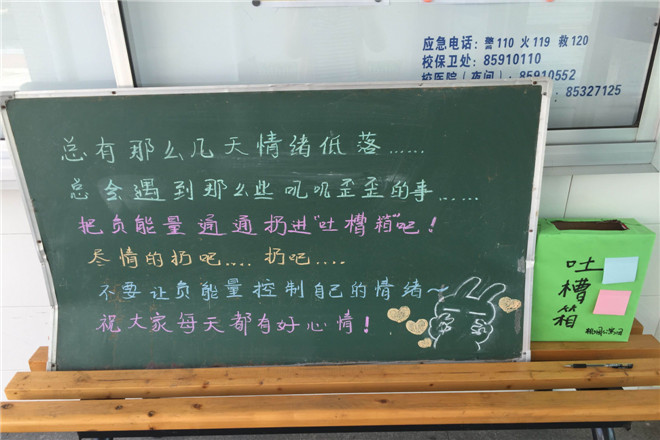 应急电话：警110 火119 救120
校保卫处：85910110
校医院（夜间）：85910552
85327125
总有那么几天情绪低落……
总会遇到那么些叽叽歪歪的事……
把负能量通通扔进"吐槽箱"吧！
尽情的扔吧.... 扔吧....
不要让负能量控制自己的情绪~
祝大家每天都有好心情！
吐槽箱